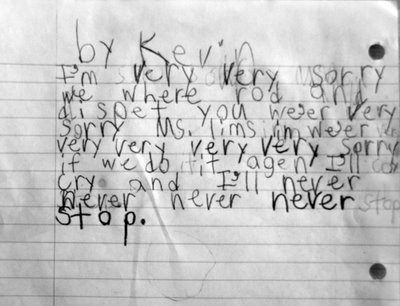 by Kevin
I'm very very sorry
we where rod and
dispet you weer very
sorry Ms. lims im weer
very very very very sorry
if we do it agen I'll
cry and I'll never
never never never stop
stop.